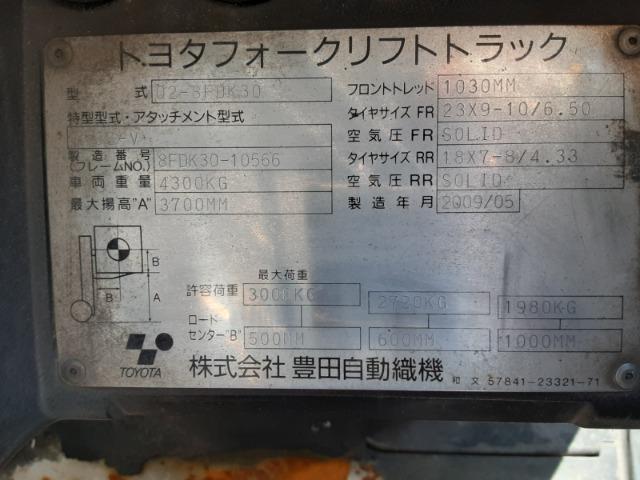 トヨタフォークリフトトラック
型 式 02-8FDK30
フロントトレッド 1030MM
特型型式・アタッチメント型式
タイヤサイズ FR 23X9-10/6.50
-V
空気圧 FR SOLID
製造番号 (フレームNO.) 8FDK30-10566
タイヤサイズ RR 18X7-8/4.33
車両重量 4300KG
空気圧 RR SOLID
最大揚高"A" 3700MM
製造年月 2009/05
B
B A
最大荷重
許容荷重 3000KG 2720KG 1980KG
ロード
センター"B" 500MM 600MM 1000MM
TOYOTA
株式会社 豊田自動織機
和文 57841-23321-71